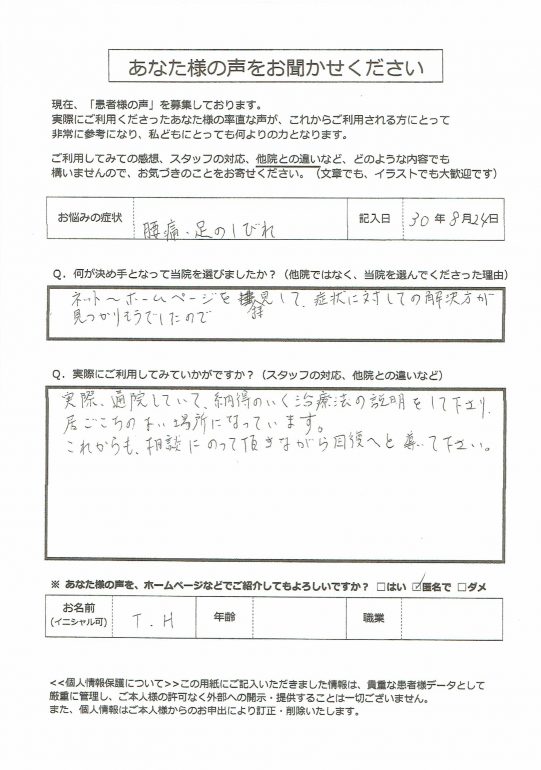 あなた様の声をお聞かせください
現在、「患者様の声」を募集しております。
実際にご利用くださったあなた様の率直な声が、これからご利用される方にとって
非常に参考になり、私どもにとっても何よりの力となります。
ご利用してみての感想、スタッフの対応、他院との違いなど、どのような内容でも
構いませんので、お気づきのことをお寄せください。（文章でも、イラストでも大歓迎です）
お悩みの症状 腰痛・足のしびれ 記入日 30年8月24日
Q．何が決め手となって当院を選びましたか？（他院ではなく、当院を選んでくださった理由）
ネット〜ホームページを 見して、症状に対しての解決方が
見つかりそうでしたので
Q．実際にご利用してみていかがですか？（スタッフの対応、他院との違いなど）
実際、通院していて、納得のいく治療法の説明をして下さり、
居ごこちのよい場所になっています。
これからも、相談にのって頂きながら回復へと導いて下さい。
※ あなた様の声を、ホームページなどでご紹介してもよろしいですか？ □はい ☑匿名で □ダメ
お名前 T．H 年齢 職業
(イニシャル可)
<<個人情報保護について>>この用紙にご記入いただきました情報は、貴重な患者様データとして
厳重に管理し、ご本人様の許可なく外部への開示・提供することは一切ございません。
また、個人情報はご本人様からのお申出により訂正・削除いたします。